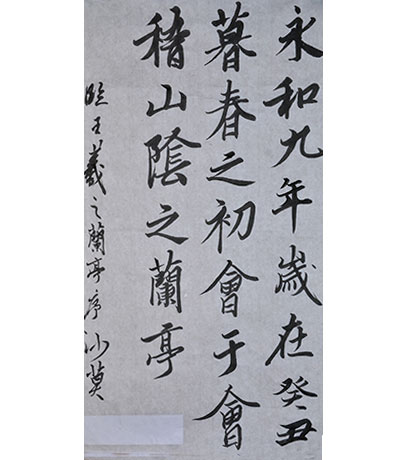 永和九年歲在癸丑
暮春之初會于會
稽山陰之蘭亭
临王羲之蘭亭序 沙莫